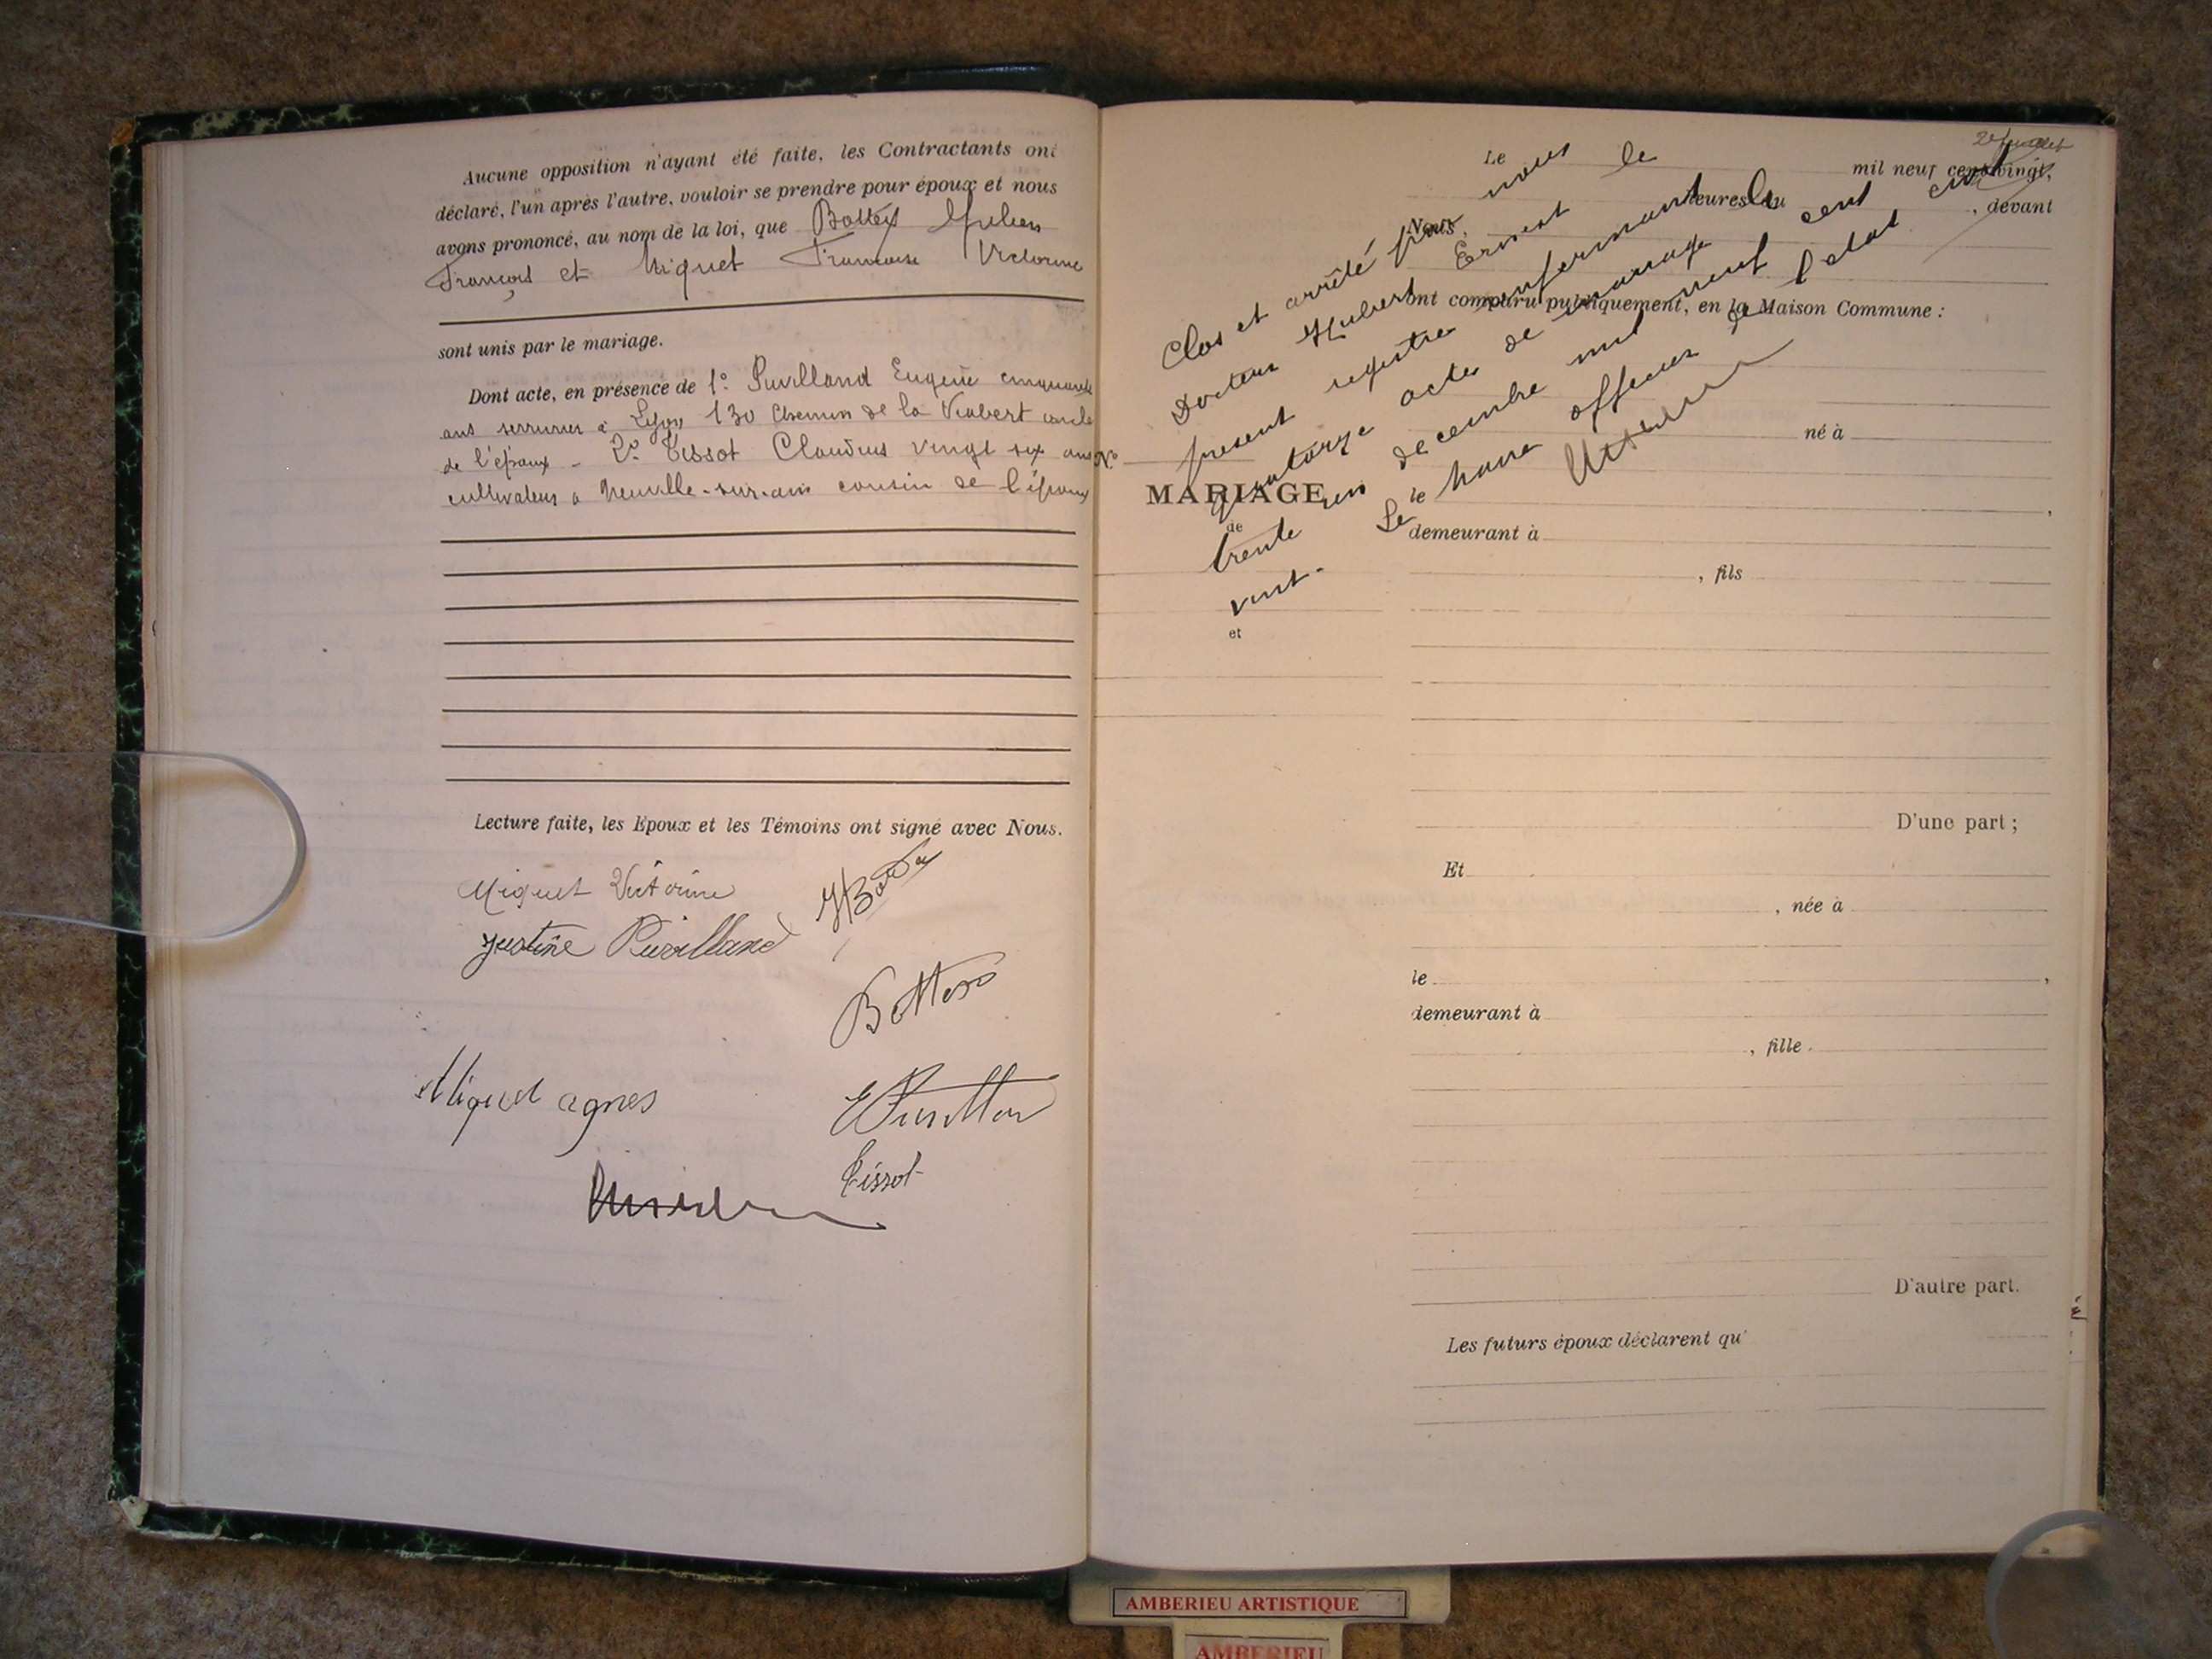 Aucune opposition n'ayant été faite, les Contractants ont
déclaré, l'un après l'autre, vouloir se prendre pour époux et nous
avons prononcé, au nom de la loi, que Bottex Julien
François et Miguet Françoise Victorine
sont unis par le mariage.
Dont acte, en présence de 1° Puvilland Eugène cinquante
ans serrurier à Lyon 130 chemin de la oncle
de l'époux - 2° Tissot Claudius vingt six ans
cultivateur à Neuville-sur-ain cousin de l'époux
Lecture faite, les Epoux et les Témoins ont signé avec Nous.
Miguet Victorine
Justine Puvilland
Bottex
Miguet agnes
Tissot
2e feuillet
Le mil neuf cent vingt,
heures du , devant
Nous,
ont comparu publiquement, en la Maison Commune :
Clos et arrêté par nous le
Docteur Hubert Ernest le
present registre renfermant cent
quatorze actes de mariage
trente un decembre mil neuf cent
vint.
Le maire officier de l'etat civil
N°
MARIAGE
de
et
né à
le
demeurant à
, fils
D'une part ;
Et
, née à
le
demeurant à
, fille
D'autre part.
Les futurs époux déclarent qu'
AMBERIEU ARTISTIQUE
AMBERIEU